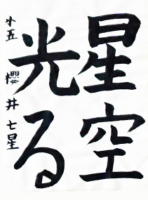 星空
光る
小五 櫻井七星